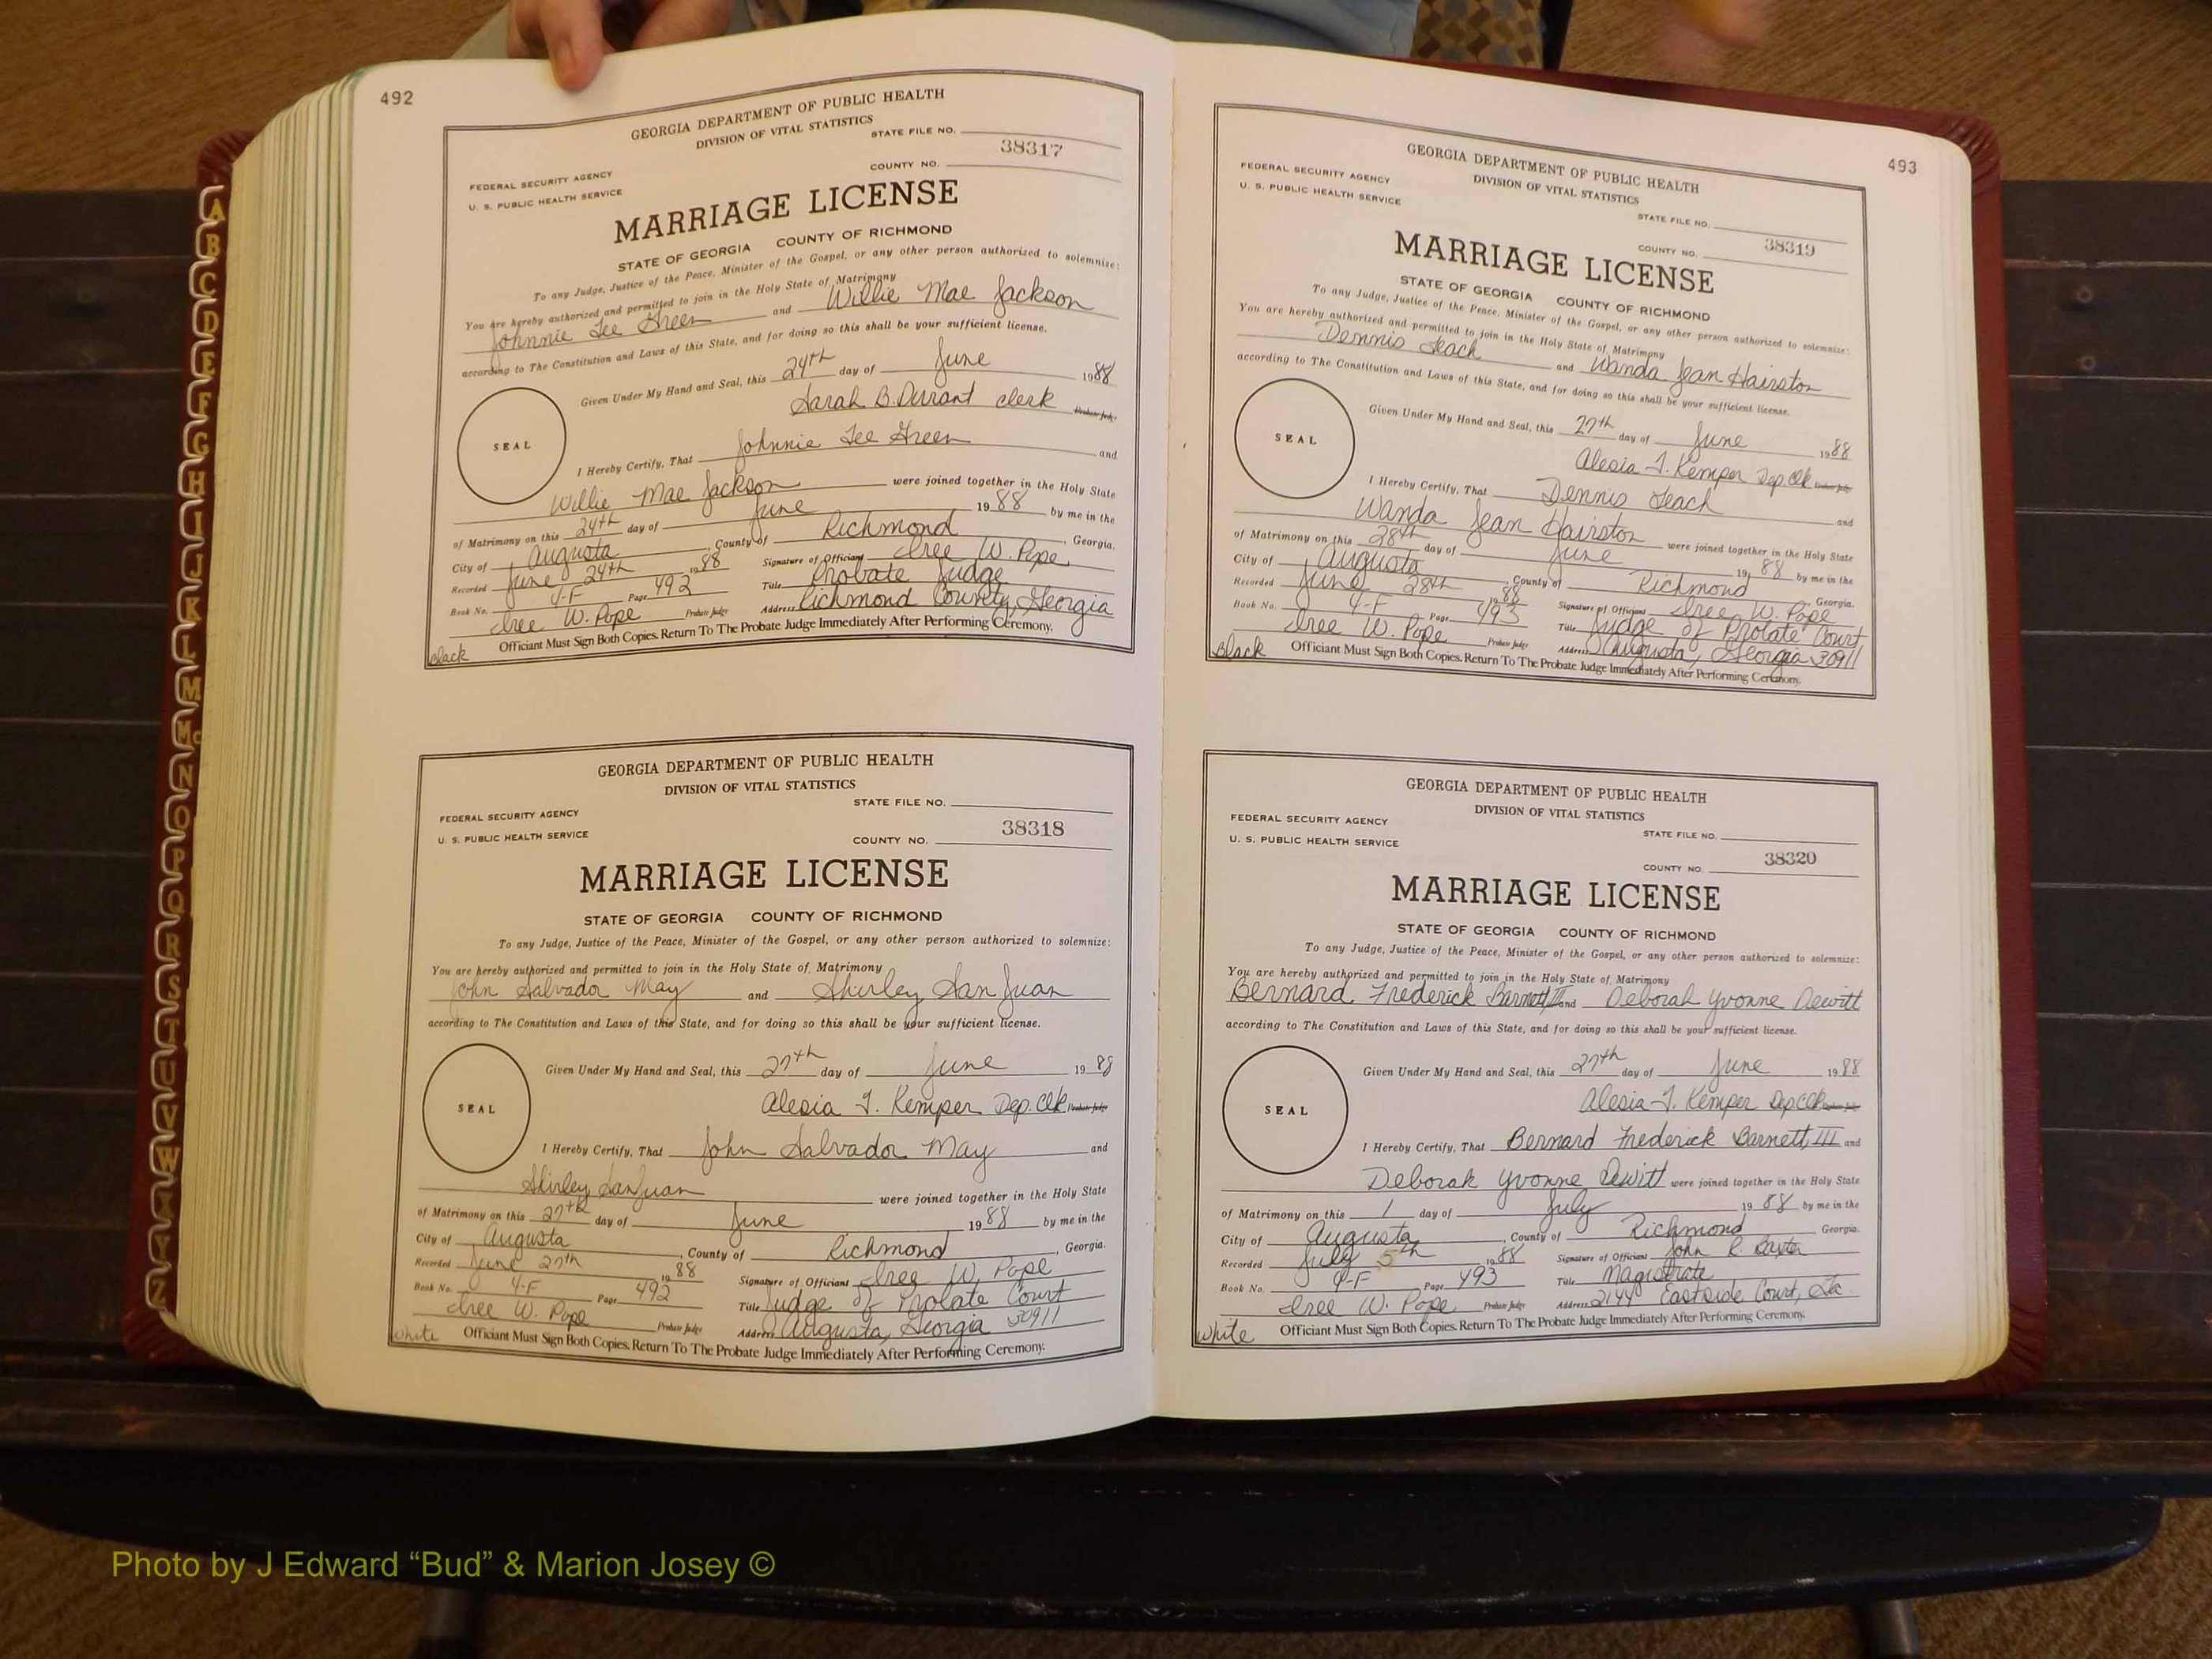 492
GEORGIA DEPARTMENT OF PUBLIC HEALTH
DIVISION OF VITAL STATISTICS
STATE FILE NO.
38317
COUNTY NO.
FEDERAL SECURITY AGENCY
U. S. PUBLIC HEALTH SERVICE
MARRIAGE LICENSE
STATE OF GEORGIA COUNTY OF RICHMOND
To any Judge, Justice of the Peace, Minister of the Gospel, or any other person authorized to solemnize:
You are hereby authorized and permitted to join in the Holy State of Matrimony
Johnnie Lee Green and Willie Mae Jackson
according to The Constitution and Laws of this State, and for doing so this shall be your sufficient license.
Given Under My Hand and Seal, this 24th day of June 1988
Sarah B. Durrant clerk Probate Judge
SEAL
I Hereby Certify, That Johnnie Lee Green and
Willie Mae Jackson were joined together in the Holy State
of Matrimony on this 24th day of June 1988 by me in the
City of Augusta, County of Richmond, Georgia.
Recorded June 24th 1988 Signature of Officiant W. Pope
Book No. 4-F Page 492 Title Probate Judge
W. Pope Probate Judge Address Richmond County, Georgia
Officiant Must Sign Both Copies. Return To The Probate Judge Immediately After Performing Ceremony.
Black
GEORGIA DEPARTMENT OF PUBLIC HEALTH
DIVISION OF VITAL STATISTICS
STATE FILE NO.
FEDERAL SECURITY AGENCY
38318
U. S. PUBLIC HEALTH SERVICE
COUNTY NO.
MARRIAGE LICENSE
STATE OF GEORGIA COUNTY OF RICHMOND
To any Judge, Justice of the Peace, Minister of the Gospel, or any other person authorized to solemnize:
You are hereby authorized and permitted to join in the Holy State of Matrimony
John Salvador May and Shirley San Juan
according to The Constitution and Laws of this State, and for doing so this shall be your sufficient license.
Given Under My Hand and Seal, this 27th day of June 1988
Alesia J. Kemper Dep. Clk Probate Judge
SEAL
I Hereby Certify, That John Salvador May and
Shirley San Juan were joined together in the Holy State
of Matrimony on this 27th day of June 1988 by me in the
City of Augusta, County of Richmond, Georgia.
Recorded June 27th 1988 Signature of Officiant W. Pope
Book No. 4-F Page 492 Title Judge of Probate Court
W. Pope Probate Judge Address Augusta, Georgia 30911
white Officiant Must Sign Both Copies. Return To The Probate Judge Immediately After Performing Ceremony.
493
GEORGIA DEPARTMENT OF PUBLIC HEALTH
DIVISION OF VITAL STATISTICS
FEDERAL SECURITY AGENCY
U. S. PUBLIC HEALTH SERVICE
STATE FILE NO.
38319
COUNTY NO.
MARRIAGE LICENSE
STATE OF GEORGIA COUNTY OF RICHMOND
To any Judge, Justice of the Peace, Minister of the Gospel, or any other person authorized to solemnize:
You are hereby authorized and permitted to join in the Holy State of Matrimony
Dennis Leach and Wanda Jean Hairston
according to The Constitution and Laws of this State, and for doing so this shall be your sufficient license.
Given Under My Hand and Seal, this 27th day of June 1988
Alesia J. Kemper Dep. Clk Probate Judge
SEAL
I Hereby Certify, That Dennis Leach and
Wanda Jean Hairston were joined together in the Holy State
of Matrimony on this 28th day of June 1988 by me in the
City of Augusta, County of Richmond, Georgia.
Recorded June 28th 1988 Signature of Officiant W. Pope
Book No. 4-F Page 493 Title Judge of Probate Court
W. Pope Probate Judge Address Augusta, Georgia 30911
Black Officiant Must Sign Both Copies. Return To The Probate Judge Immediately After Performing Ceremony.
GEORGIA DEPARTMENT OF PUBLIC HEALTH
DIVISION OF VITAL STATISTICS
FEDERAL SECURITY AGENCY
STATE FILE NO.
U. S. PUBLIC HEALTH SERVICE
38320
COUNTY NO.
MARRIAGE LICENSE
STATE OF GEORGIA COUNTY OF RICHMOND
To any Judge, Justice of the Peace, Minister of the Gospel, or any other person authorized to solemnize:
You are hereby authorized and permitted to join in the Holy State of Matrimony
Bernard Frederick Barnett, III and Deborah Yvonne Dewitt
according to The Constitution and Laws of this State, and for doing so this shall be your sufficient license.
Given Under My Hand and Seal, this 27th day of June 1988
Alesia J. Kemper Dep Clk Probate Judge
SEAL
I Hereby Certify, That Bernard Frederick Barnett, III and
Deborah Yvonne Dewitt were joined together in the Holy State
of Matrimony on this 1 day of July 1988 by me in the
City of Augusta, County of Richmond Georgia.
Recorded July 5th 1988 Signature of Officiant John R. Baxter
Book No. 4-F Page 493 Title Magistrate
W. Pope Probate Judge Address 2144 Eastside Court, Ga.
white Officiant Must Sign Both Copies. Return To The Probate Judge Immediately After Performing Ceremony.
A
B
C
D
E
F
G
H
I
J
K
L
M
Mc
N
O
P
Q
R
S
T
U
V
W
X
Y
Z
Photo by J Edward “Bud” & Marion Josey ©